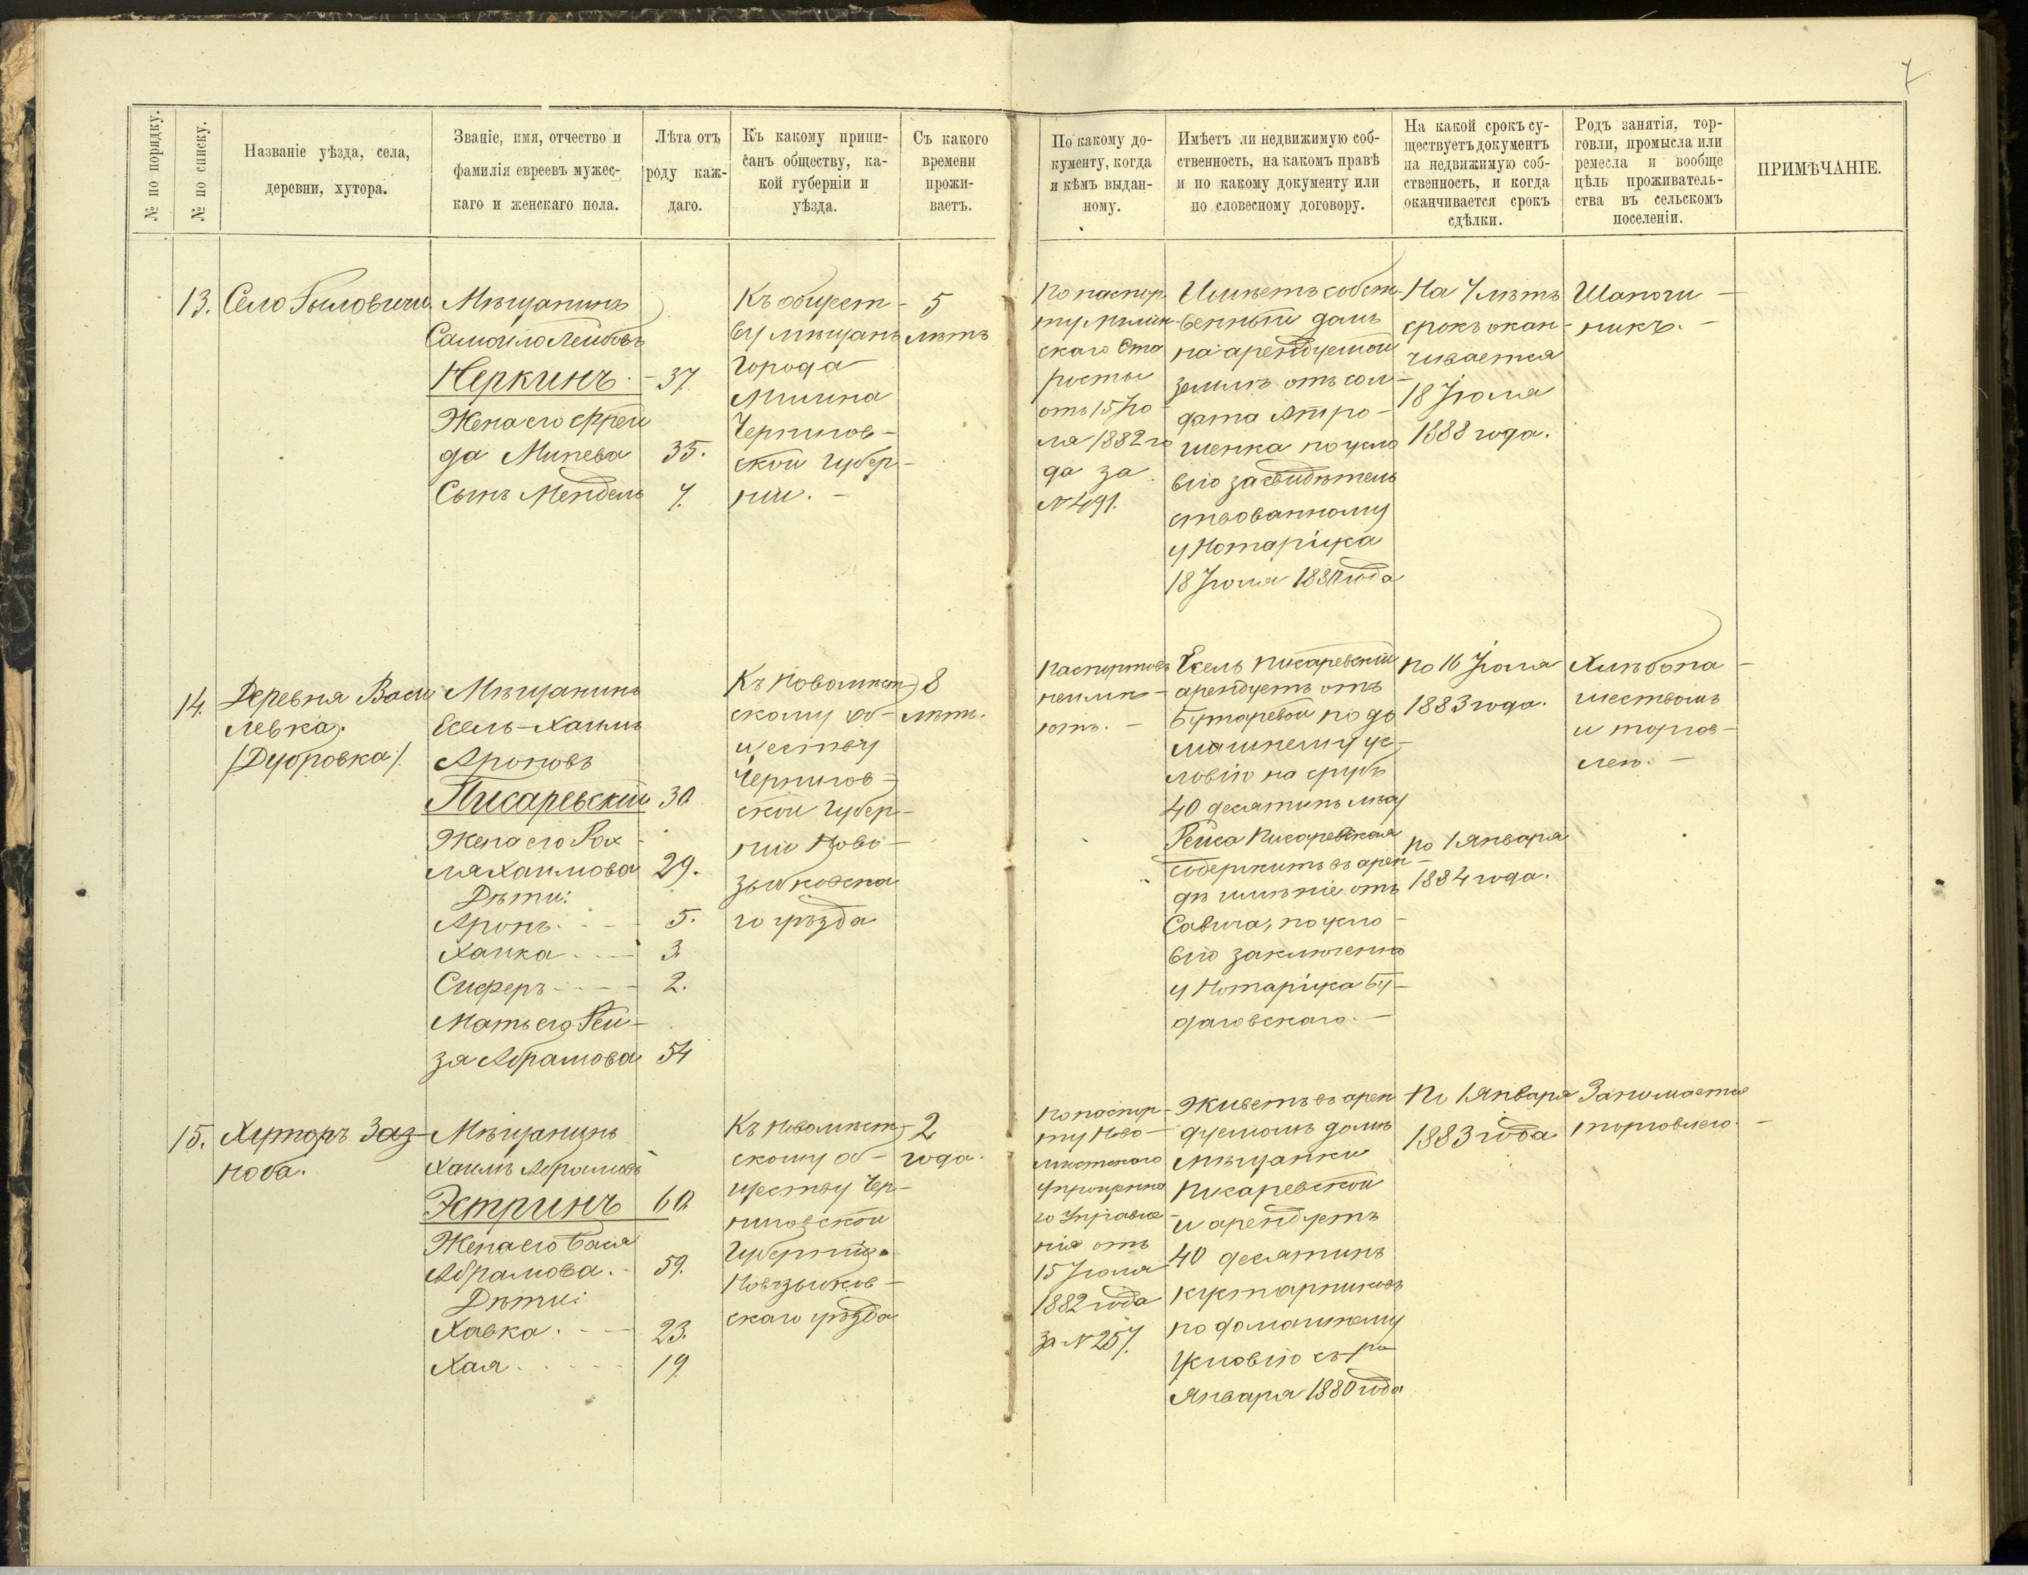 7
№ по порядку.
№ по списку.
Названіе уѣзда, села,
деревни, хутора.
Званіе, имя, отчество и
фамилія евреевъ мужес-
каго и женскаго пола.
Лѣта отъ
роду каж-
даго.
Къ какому припи-
санъ обществу, ка-
кой губерніи и
уѣзда.
Съ какого
времени
прожи-
ваетъ.
По какому до-
кументу, когда
и кѣмъ выдан-
ному.
Имѣетъ ли недвижимую соб-
ственность, на какомъ правѣ
и по какому документу или
по словесному договору.
На какой срокъ су-
ществуетъ документъ
на недвижимую соб-
ственность, и когда
оканчивается срокъ
сдѣлки.
Родъ занятія, тор-
говли, промысла или
ремесла и вообще
цѣль проживатель-
ства въ сельскомъ
поселеніи.
ПРИМѢЧАНІЕ.
13.
Село Гыловичи
Мѣщанинъ
Самойло Лейбовъ
Неркинъ. 37.
Жена его Фрей
да Минева 35.
Сынъ Мендель 7.
Къ общест-
ву мѣщанъ
города
Мглина
Чернигов-
ской Губер-
ніи.
5
лѣтъ
По паспор
ту Мглин-
скаго Ста
росты
отъ 15 Ію-
ля 1882 го
да за
№ 491.
Имѣетъ собст-
венный домъ
на арендуемой
землѣ отъ сол-
дата Атро-
шенка по усло
вію засвидѣтель
ствованному
у Нотаріуса
18 Іюля 1881 года
На 7 лѣтъ
срокъ окан-
чивается
18 Іюля
1888 года.
Шапош
никъ.
14.
Деревня Васи
левка.
/Дубровка/
Мѣщанинъ
Есель-Хаимъ
Ароновъ
Писаревскій 30
Жена его Рох
ля Хаимова 29.
Дѣти:
Аронъ 5.
Ханка 3.
Сиферъ 2.
Мать его Рей-
за Абрамова 54
Къ Новомѣст-
скому об-
ществу
Чернигов-
ской Губер-
ніи Ново-
зыбковска
го уѣзда
8
лѣтъ.
Паспортовъ
неимѣ-
ютъ.
Есель Писаревскій
арендуетъ отъ
Бутаревой по до
машнему ус-
ловію на срубъ
40 десятинъ лѣсу
Рейса Писаревская
содержитъ въ арен-
дѣ имѣніе отъ
Савича, по усло-
вію заключенно
у Нотаріуса Бу-
даговскаго.
По 16 Іюля
1883 года.
По 1 Января
1884 года.
Хлѣбопа
шествомъ
и торгов-
лею.
15.
Хуторъ Заз-
нова.
Мѣщанинъ
Хаимъ Абрамовъ
Эстринъ 60.
Жена его Бася
Абрамова. 59.
Дѣти:
Хавка. 23.
Хая 19.
Къ Новомѣст-
скому об-
ществу Чер-
ниговской
Губерніи
Новозыбков-
скаго уѣзда
2
года.
По паспор-
ту Ново-
мѣстскаго
упрощенна
го Управле-
нія отъ
15 Іюля
1882 года
за № 257.
Живетъ въ арен
дуемомъ домѣ
мѣщанки
Писаревской
и арендуетъ
40 десятинъ
кустарниковъ
по домашнему
условію съ 1го
Января 1880 года
По 1 Января
1883 года
Занимается
торговлею.